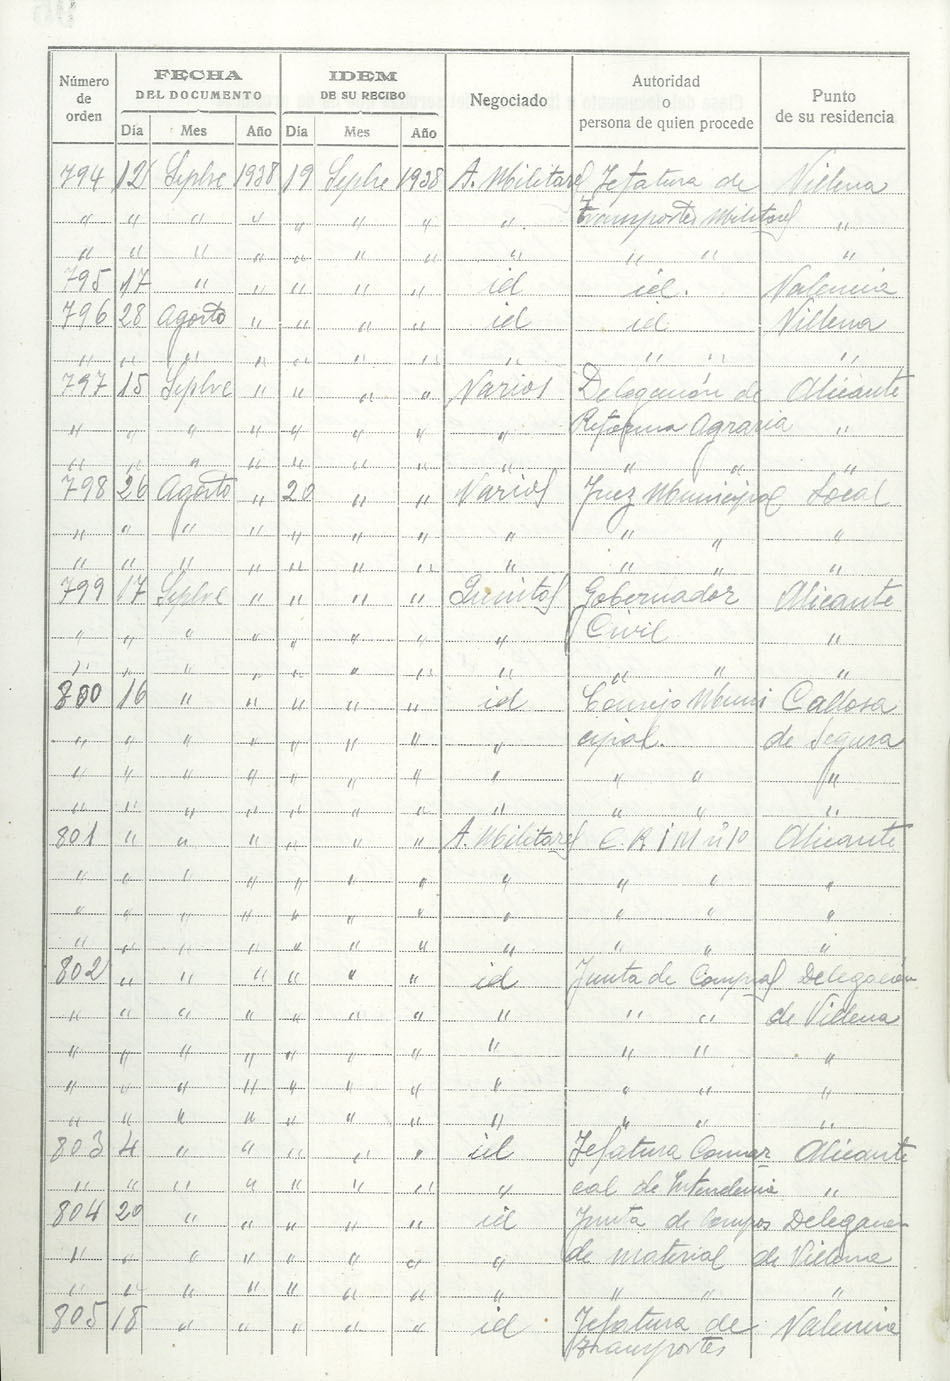 Número de orden | FECHA DEL DOCUMENTO | IDEM DE SU RECIBO | Negociado | Autoridad o persona de quien procede | Punto de su residencia
Día | Mes | Año | Día | Mes | Año
794 | 12 | Sepbre | 1938 | 19 | Sepbre | 1938 | A. Militares | Jefatura de | Villena
" | " | " | " | " | " | " | " | Transportes Militares | "
" | " | " | " | " | " | " | " | " " | "
795 | 17 | " | " | " | " | " | id | id. | Valencia
796 | 28 | Agosto | " | " | " | " | id | id | Villena
" | " | " | " | " | " | " | " | " " | "
797 | 15 | Sepbre | " | " | " | " | Varios | Delegación de | Alicante
" | " | " | " | " | " | " | " | Reforma Agraria | "
" | " | " | " | " | " | " | " | " " | "
798 | 26 | Agosto | " | 20 | " | " | Varios | Juez Municipal | Local
" | " | " | " | " | " | " | " | " " | "
" | " | " | " | " | " | " | " | " " | "
799 | 17 | Sepbre | " | " | " | " | Quintas | Gobernador | Alicante
" | " | " | " | " | " | " | " | Civil | "
" | " | " | " | " | " | " | " | " " | "
800 | 16 | " | " | " | " | " | id | Consejo Muni | Callosa
" | " | " | " | " | " | " | " | cipal. | de Segura
" | " | " | " | " | " | " | " | " " | "
" | " | " | " | " | " | " | " | " " | "
801 | " | " | " | " | " | " | A. Militares | C. R I M nº 10 | Alicante
" | " | " | " | " | " | " | " | " " | "
" | " | " | " | " | " | " | " | " " | "
" | " | " | " | " | " | " | " | " " | "
802 | " | " | " | " | " | " | id | Junta de Compras | Delegación
" | " | " | " | " | " | " | " | " " | de Villena
" | " | " | " | " | " | " | " | " " | "
" | " | " | " | " | " | " | " | " " | "
" | " | " | " | " | " | " | " | " " | "
803 | 4 | " | " | " | " | " | id | Jefatura Comar | Alicante
" | " | " | " | " | " | " | " | cal de Intendencia | "
804 | 20 | " | " | " | " | " | id | Junta de Compras | Delegacion
" | " | " | " | " | " | " | " | de material | de Villena
" | " | " | " | " | " | " | " | " " | "
805 | 18 | " | " | " | " | " | id | Jefatura de | Valencia
transportes